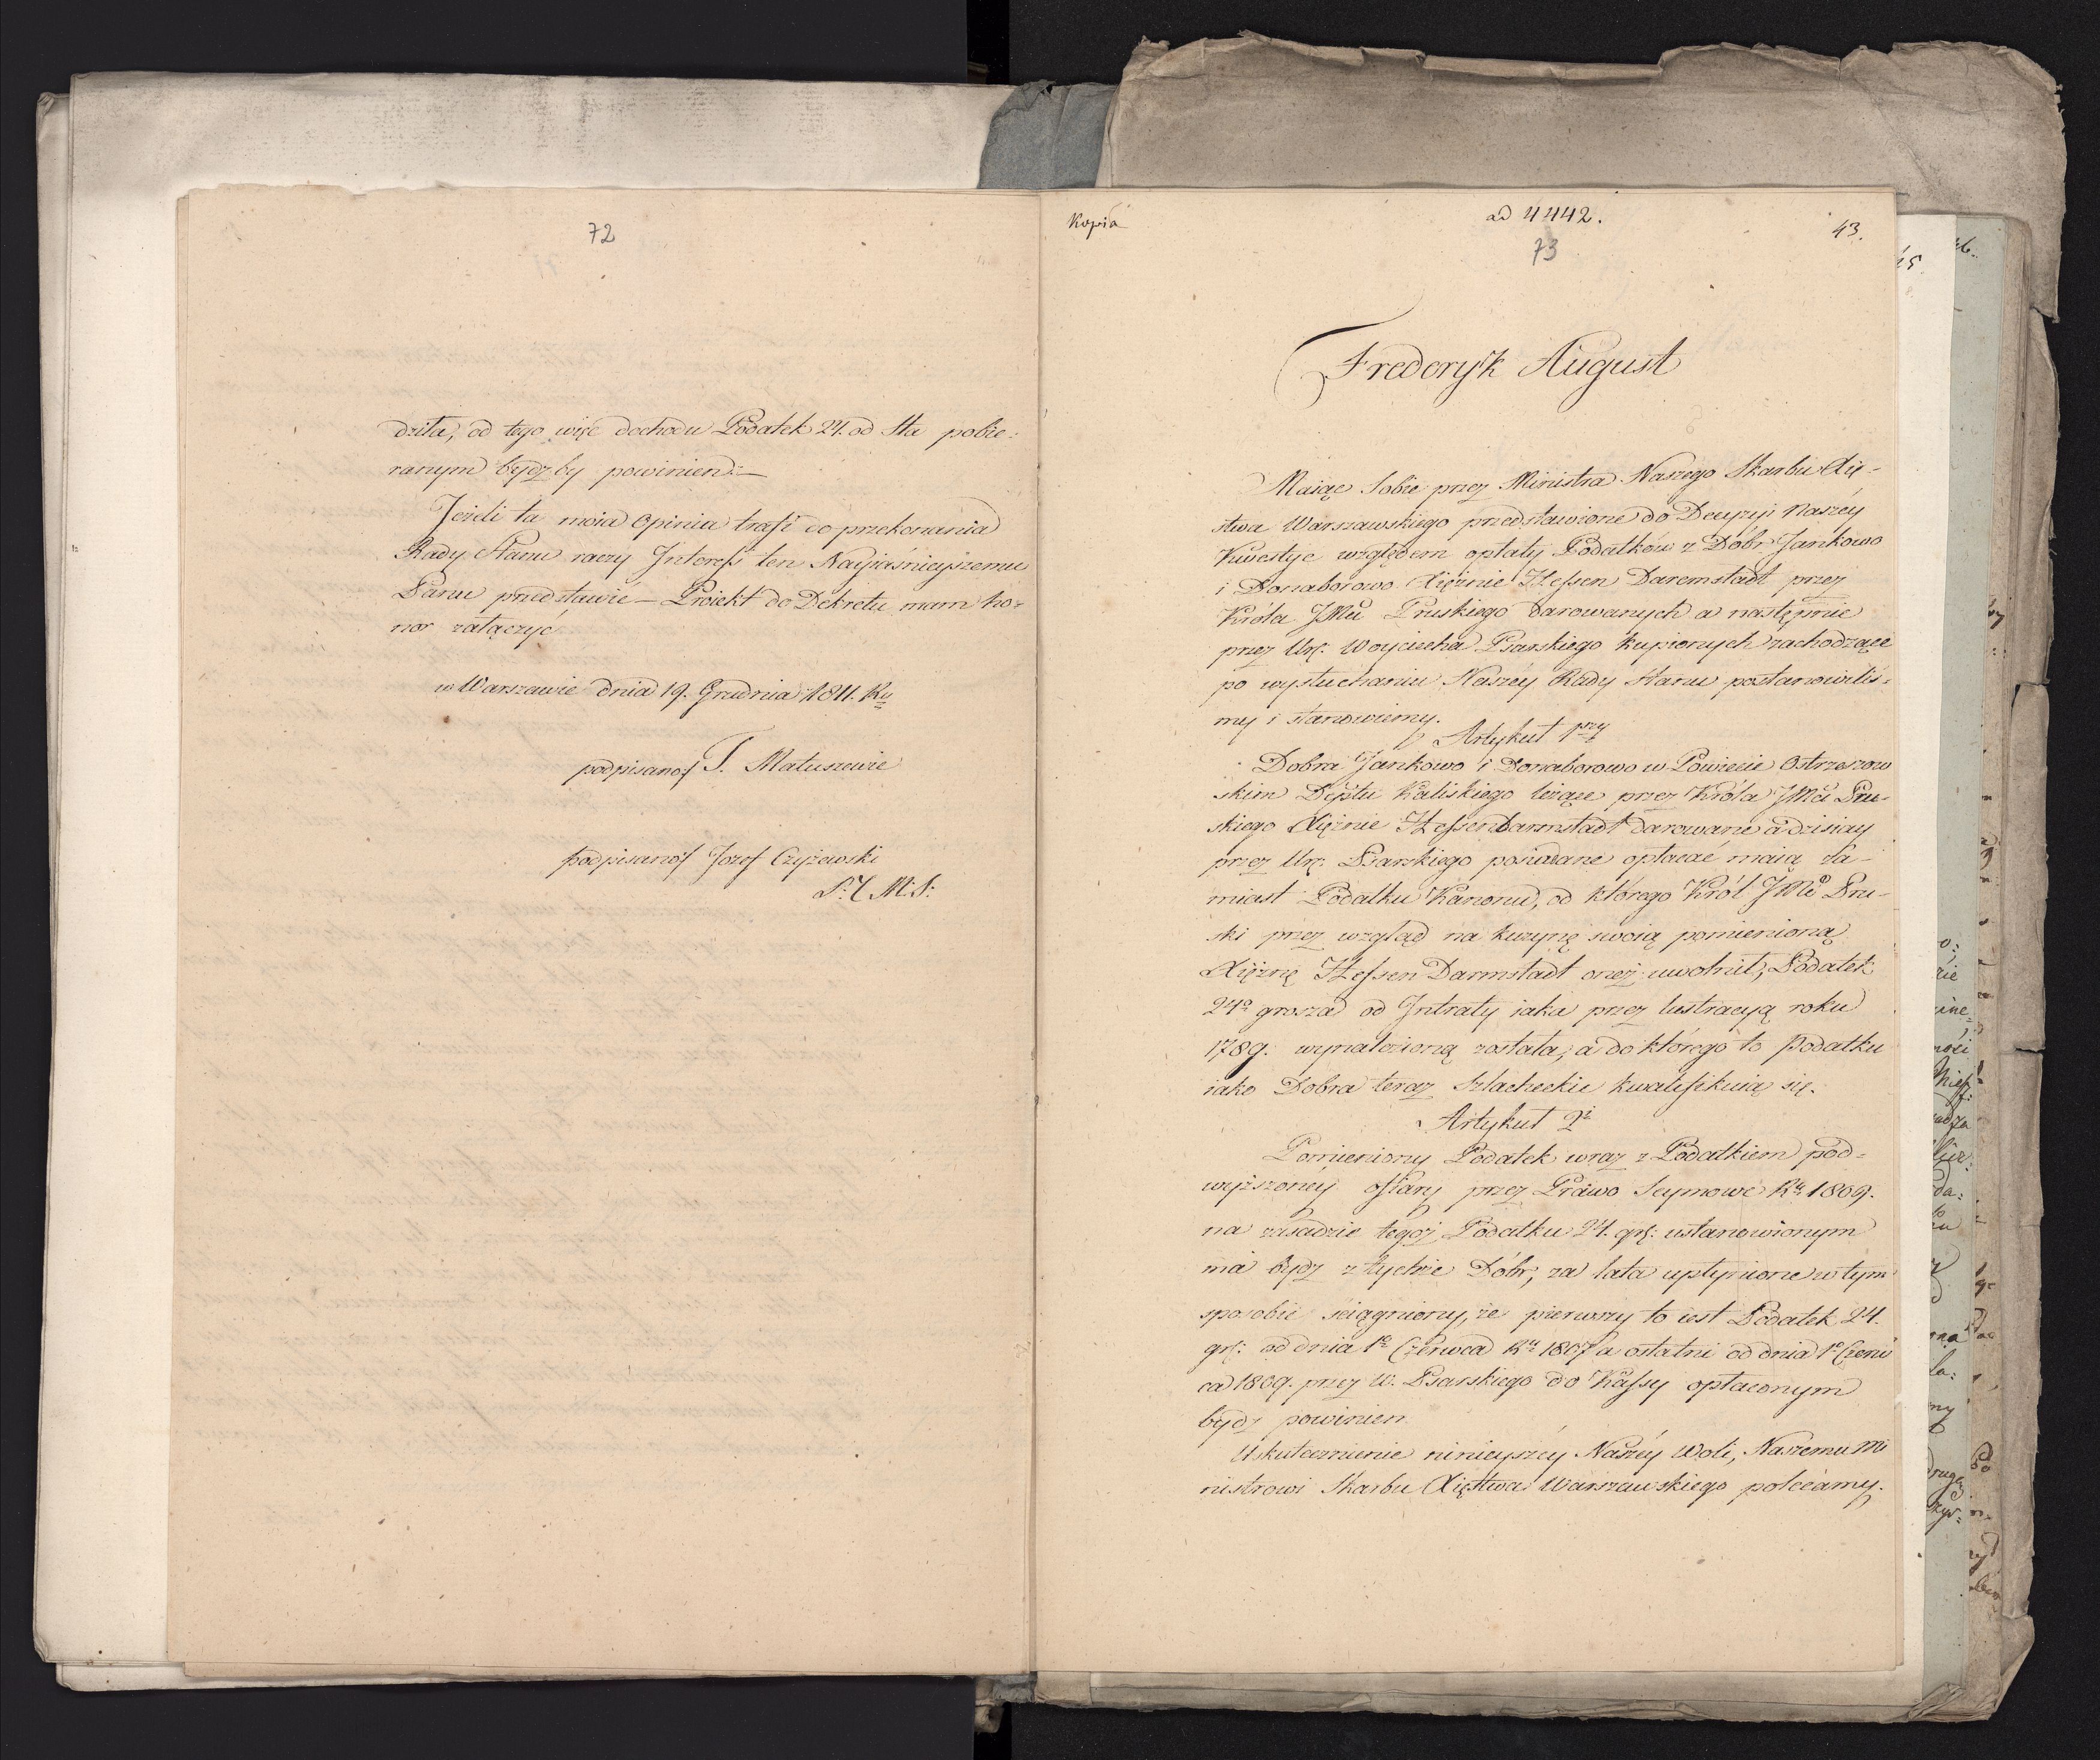 72
dziła, od tego więc dochodu Podatek 24. od Sta pobie:
ranym bydź by powinien.—
Jeżeli ta moia Opinia trafi do przekonania
Rady Stanu raczy Interess ten Nayiaśnieyszemu
Panu przedstawić — Proiekt do Dekretu mam ho:
nor załączyć
w Warszawie dnia 19. Grudnia 1811. Ru
podpisano/ T. Matuszewic
podpisano/ Jozef Czyżewski
Kopia
ad 4442.
43.
73
Frederyk August
Maiąc Sobie przez Ministra Naszego Skarbu Xię-
stwa Warszawskiego przedstawione do Decyzyi Naszéy
Kwestye względem opłaty Podatków z Dóbr Jankowo
i Donaborowo Xiężnie Hessen Daremstadt przez
Króla JMci Pruskiego darowanych a następnie
przez Ur: Woyciecha Psarskiego kupionych zachodzące
po wysłuchaniu Naszéy Rady Stanu postanowiliś:
my i stanowiemy.
Artykuł 1szy
Dobra Jankowo i Donaborowo w Powiecie Ostrzeszow
skim Deptu Kaliskiego leżące przez Króla JMci Pru-
skiego Xiężnie Hessen Darmstadt darowane a dzisiay
przez Ur: Psarskiego posiadane opłacać maią za-
miast Podatku Kanonu, od którego Król JMć Pru-
ski przez wzgląd na kuzynę swoią pomienioną
Xiężnę Hessen Darmstadt oneż uwolnił, Podatek
24o grosza od Intraty iaka przez lustracyą roku
1789. wynalezioną została, a do którego to Podatku
iako Dobra teraz Szlacheckie kwalifikuią się.
Artykuł 2i
Pomieniony Podatek wraz z Podatkiem pod=
wyższonéy ofiary przez Prawo Seymowe Ru 1809.
na zasadzie tegoż Podatku 24. gr: ustanowionym
ma bydź z tychże Dóbr, za lata upłynione w tym
sposobie ściągniony, że pierwszy to iest Podatek 24.
gr: od dnia 1o Czerwca Ru 1807 a ostatni od dnia 1o Czerw
ca 1809. przez W. Psarskiego do Kassy opłaconym
bydź powinien.
Uskutecznienie ninieyszéy Naszéy Woli, Naszemu Mi
nistrowi Skarbu Xięstwa Warszawskiego polecamy.